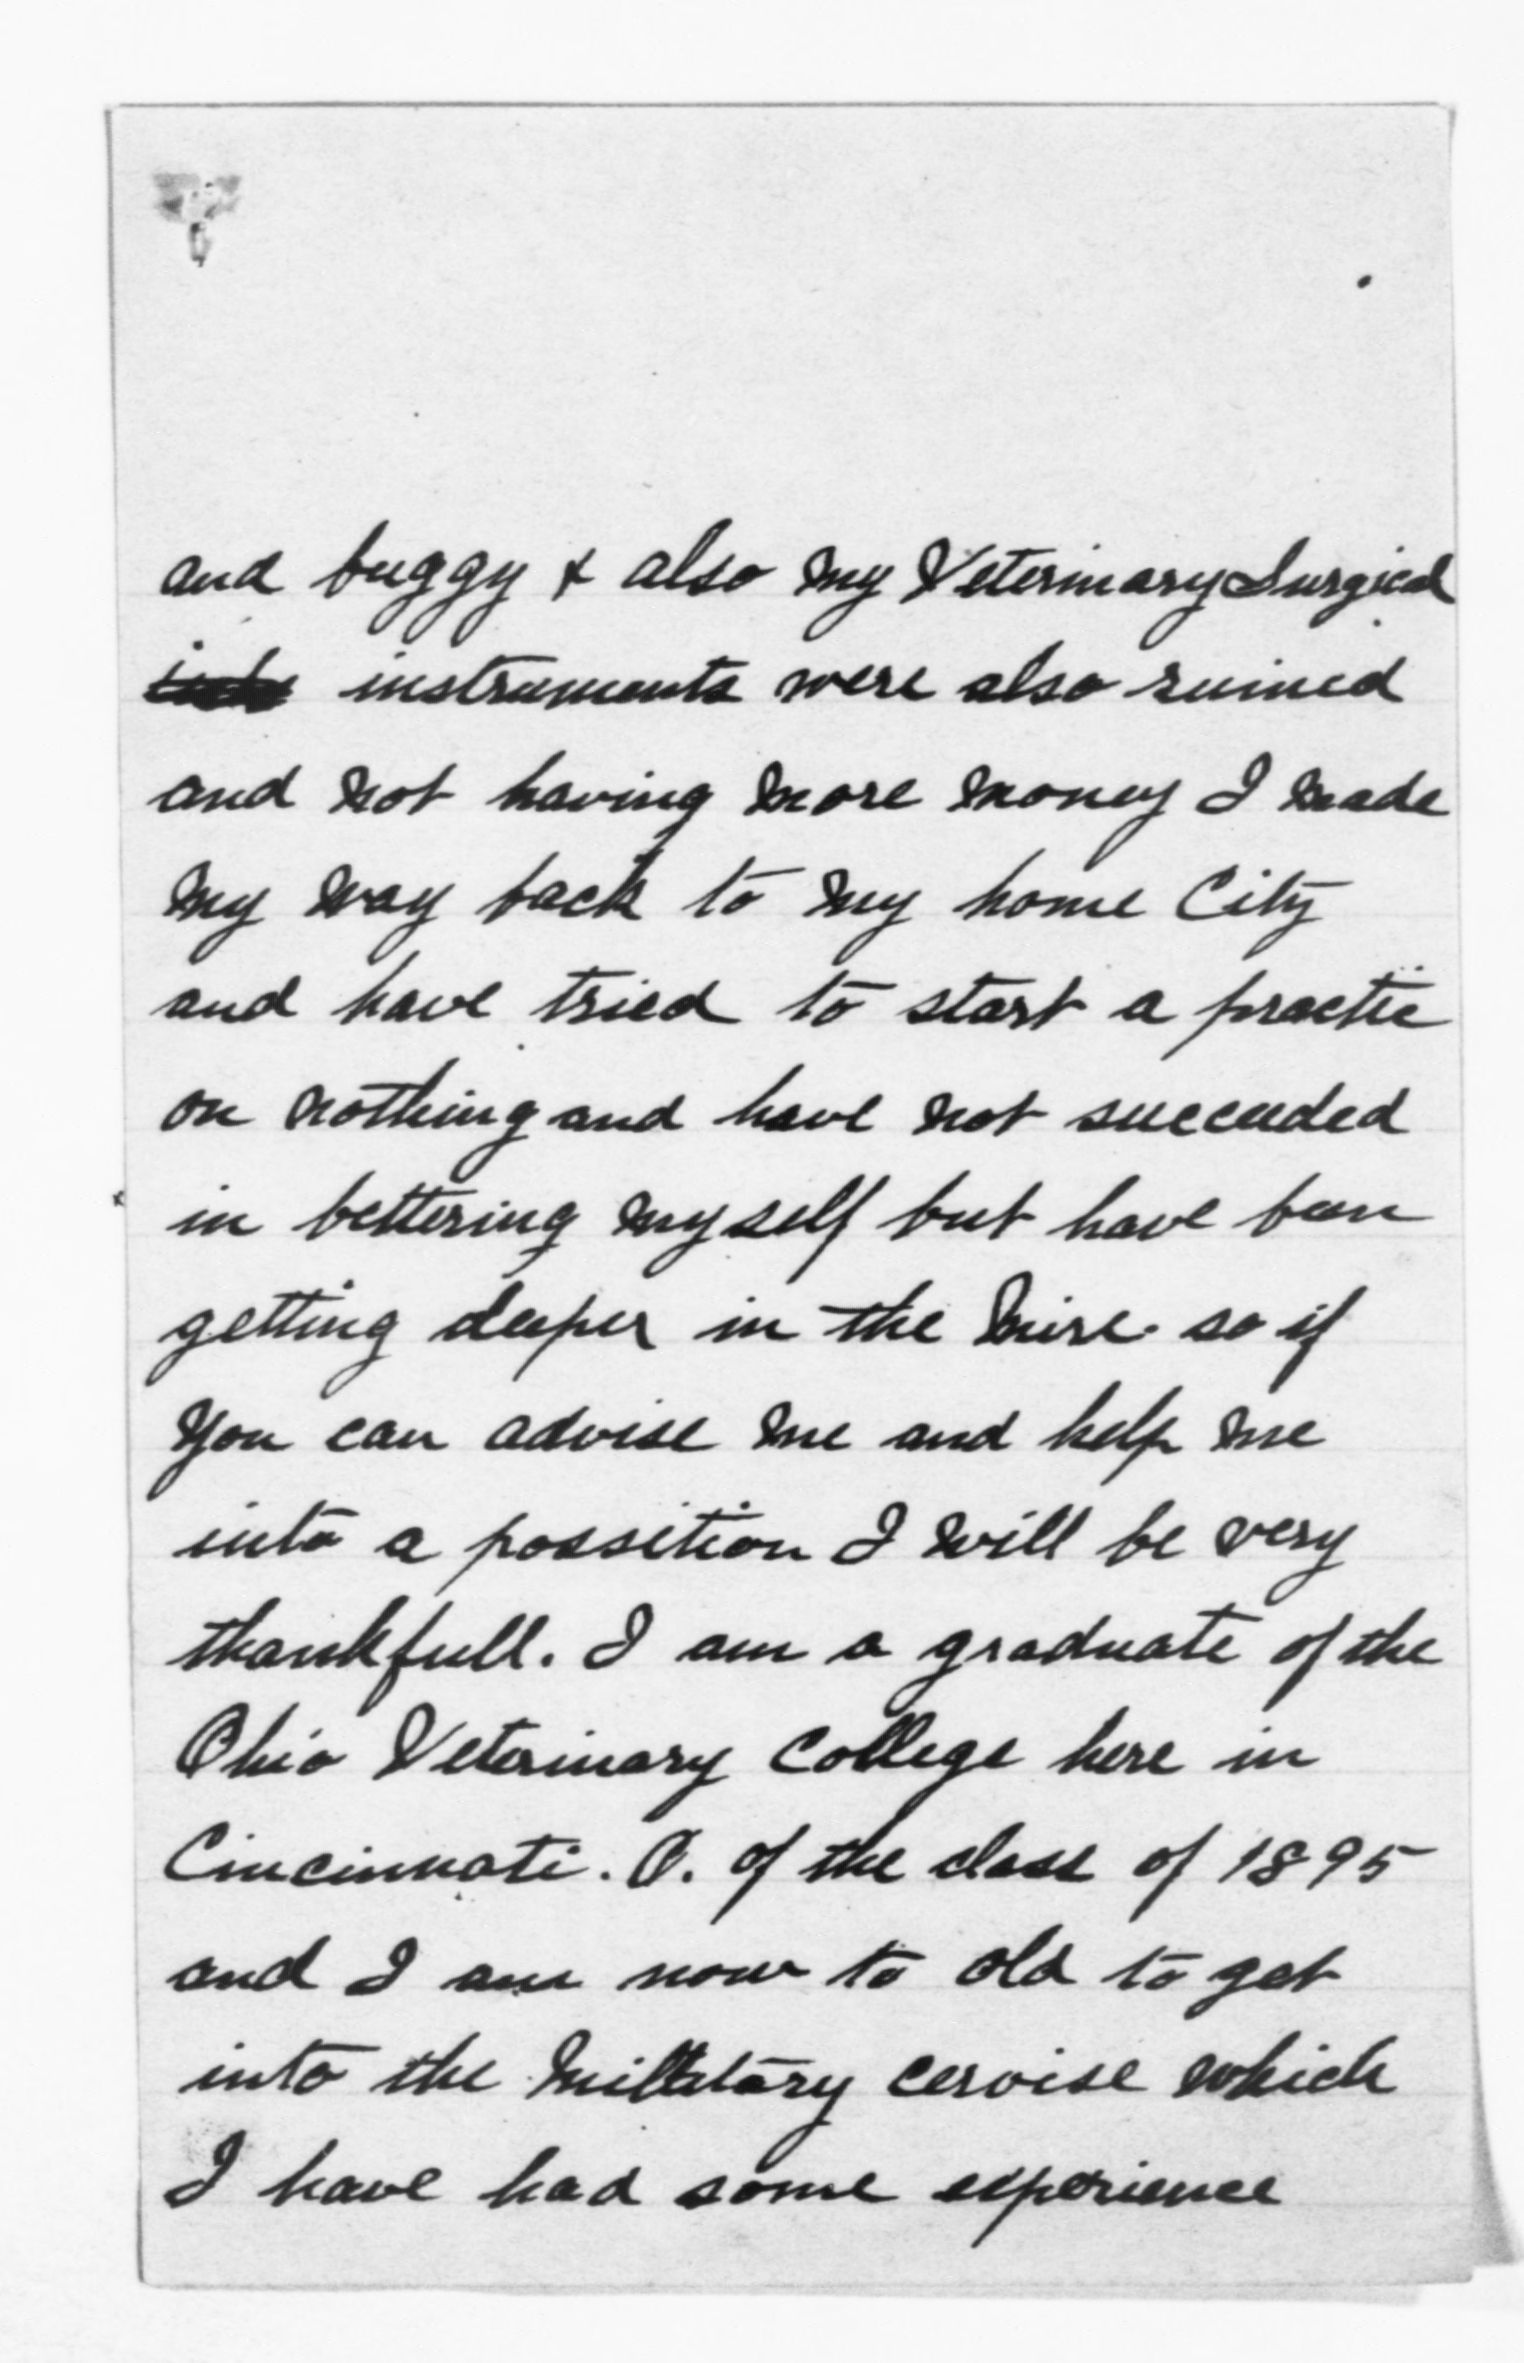 and buggy & also my Veterinary Surgical
instruments were also ruined
and not having more money I made
my way back to my home City
and have tried to start a practic
on nothing and have not succeeded
in bettering myself but have been
getting deeper in the mire. so if
you can advise me and help me
into a possition I will be very
thankfull. I am a graduate of the
Ohio Veterinary College here in
Cincinnati. O. of the class of 1895
and I am now to old to get
into the millatary cervise which
I have had some experience